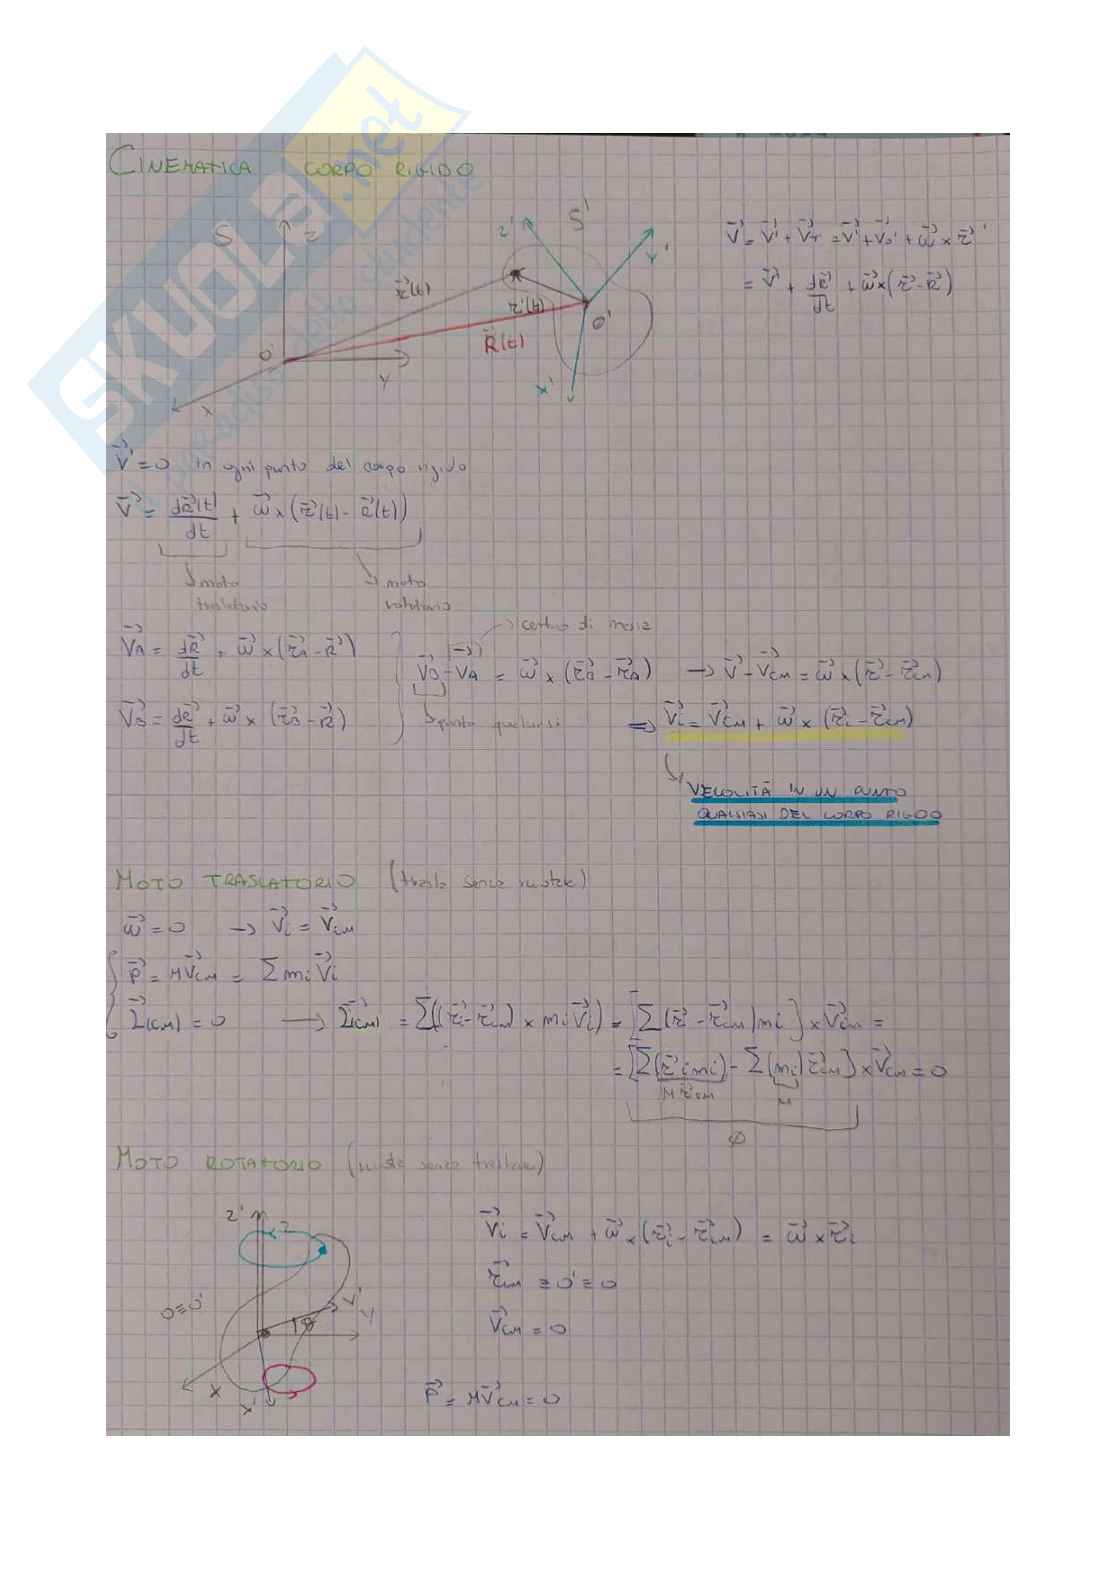 CINEMATICA CORPO RIGIDO
S z
z' S' y'
r⃗(t) r⃗'(t) O'
R⃗(t)
O y x x'
V⃗ = V⃗' + V⃗τ = V⃗' + V⃗o' + ω⃗ × r⃗'
= V⃗' + dR⃗/dt + ω⃗ × (r⃗ - R⃗)
V⃗' = 0 in ogni punto del corpo rigido
V⃗ = dR⃗(t)/dt + ω⃗ × (r⃗(t) - R⃗(t))
moto traslatorio moto rotatorio
centro di massa
V⃗A = dR⃗/dt + ω⃗ × (r⃗A - R⃗)
V⃗B - V⃗A = ω⃗ × (r⃗B - r⃗A) → V⃗ - V⃗CM = ω⃗ × (r⃗ - r⃗CM)
V⃗B = dR⃗/dt + ω⃗ × (r⃗B - R⃗)
punto qualsiasi ⇒ V⃗i = V⃗CM + ω⃗ × (r⃗i - r⃗CM)
VELOCITÀ IN UN PUNTO
QUALSIASI DEL CORPO RIGIDO
MOTO TRASLATORIO (trasla senza ruotare)
ω⃗ = 0 → V⃗i = V⃗CM
P⃗ = MV⃗CM = Σ mi V⃗i
L⃗(CM) = 0 → L⃗(CM) = Σ((r⃗i - r⃗CM) × mi V⃗i) = [Σ(r⃗ - r⃗CM)mi] × V⃗CM =
= [Σ(r⃗i mi) - Σ(mi) r⃗CM] × V⃗CM = 0
M r⃗CM M
Ø
MOTO ROTATORIO (ruota senza traslare)
z' z
O≡O' y' y
θ
x x'
V⃗i = V⃗CM + ω⃗ × (r⃗i - r⃗CM) = ω⃗ × r⃗i
r⃗CM ≡ O' ≡ O
V⃗CM = 0
P⃗ = MV⃗CM = 0
SKUOLA.net